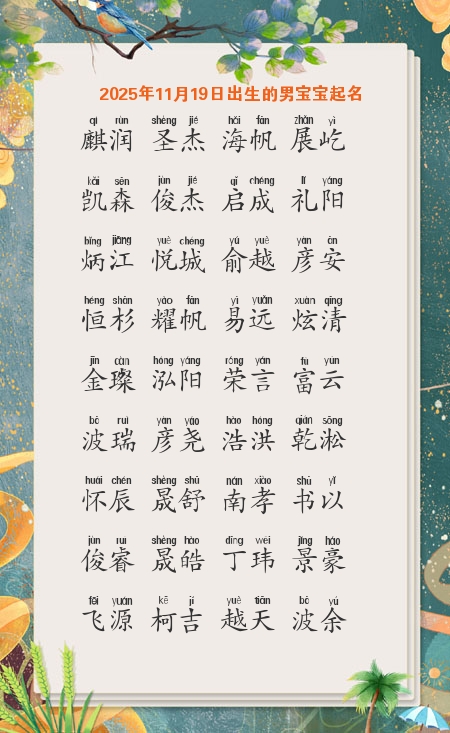 2025年11月19日出生的男宝宝起名
qí rùn shèng jié hǎi fān zhǎn yì
麒润 圣杰 海帆 展屹
kǎi sēn jùn jié qǐ chéng lǐ yáng
凯森 俊杰 启成 礼阳
bǐng jiāng yuè chéng yú yuè yàn ān
炳江 悦城 俞越 彦安
héng shān yào fān yì yuǎn xuàn qīng
恒杉 耀帆 易远 炫清
jīn càn hóng yáng róng yán fù yún
金璨 泓阳 荣言 富云
bō ruì yàn yáo hào hóng qián sōng
波瑞 彦尧 浩洪 乾淞
huái chén shèng shū nán xiào shū yǐ
怀辰 晟舒 南孝 书以
jùn ruì shèng hào dīng wěi jǐng háo
俊睿 晟皓 丁玮 景豪
fēi yuán kē jí yuè tiān bō yú
飞源 柯吉 越天 波余